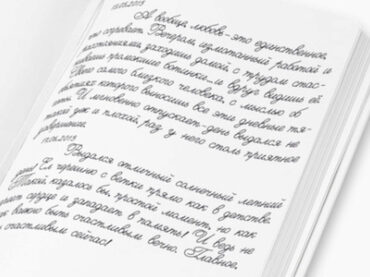 13.06.2013
А вообще, любовь-это единственное,
что согревает. Вечером, измотанный работой и
настоянками, заходишь домой, с трудом спас-
промокшие ботинки...и вдруг видишь её.
Твоего самого близкого человека, с мыслью об
объятиях которого выносишь все эти дневные тя-
готы. И мгновенно отпускает-день выдался не
такой уж и плохой, раз у него столь приятное
завершение.
19.06.2013
Выдался отличный солнечный летний
день! Ел черешню с ветки прямо как в детстве.
Такой, казалось бы, простой момент, но как
сердце и западает в память! И ведь не
важно быть счастливым вечно. Главное,
счастливым сейчас!